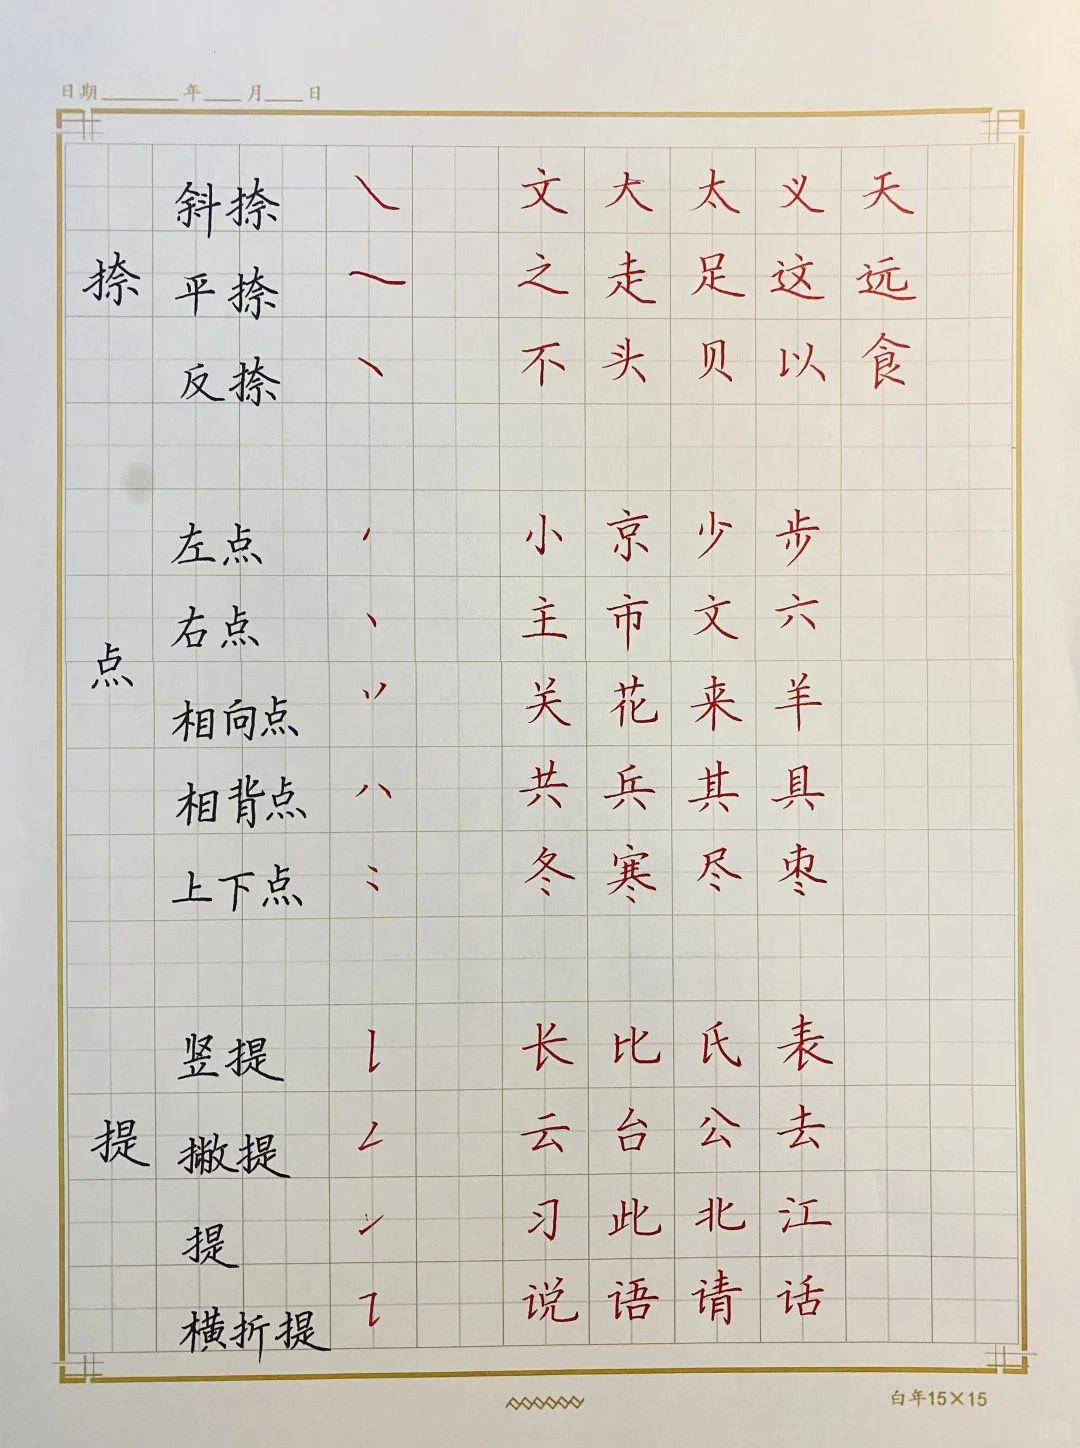 日期 年 月 日
斜捺 ㇏ 文 大 太 义 天
捺 平捺 ㇏ 之 走 足 这 远
反捺 丶 不 头 贝 以 食
左点 小 京 少 步
右点 丶 主 市 文 六
点
相向点 丷 关 花 来 羊
相背点 八 共 兵 其 具
上下点 冬 寒 尽 枣
竖提 𠄌 长 比 氏 表
提 撇提 ㇜ 云 台 公 去
提 ㇀ 习 此 北 江
横折提 ㇊ 说 语 请 话
白年15×15